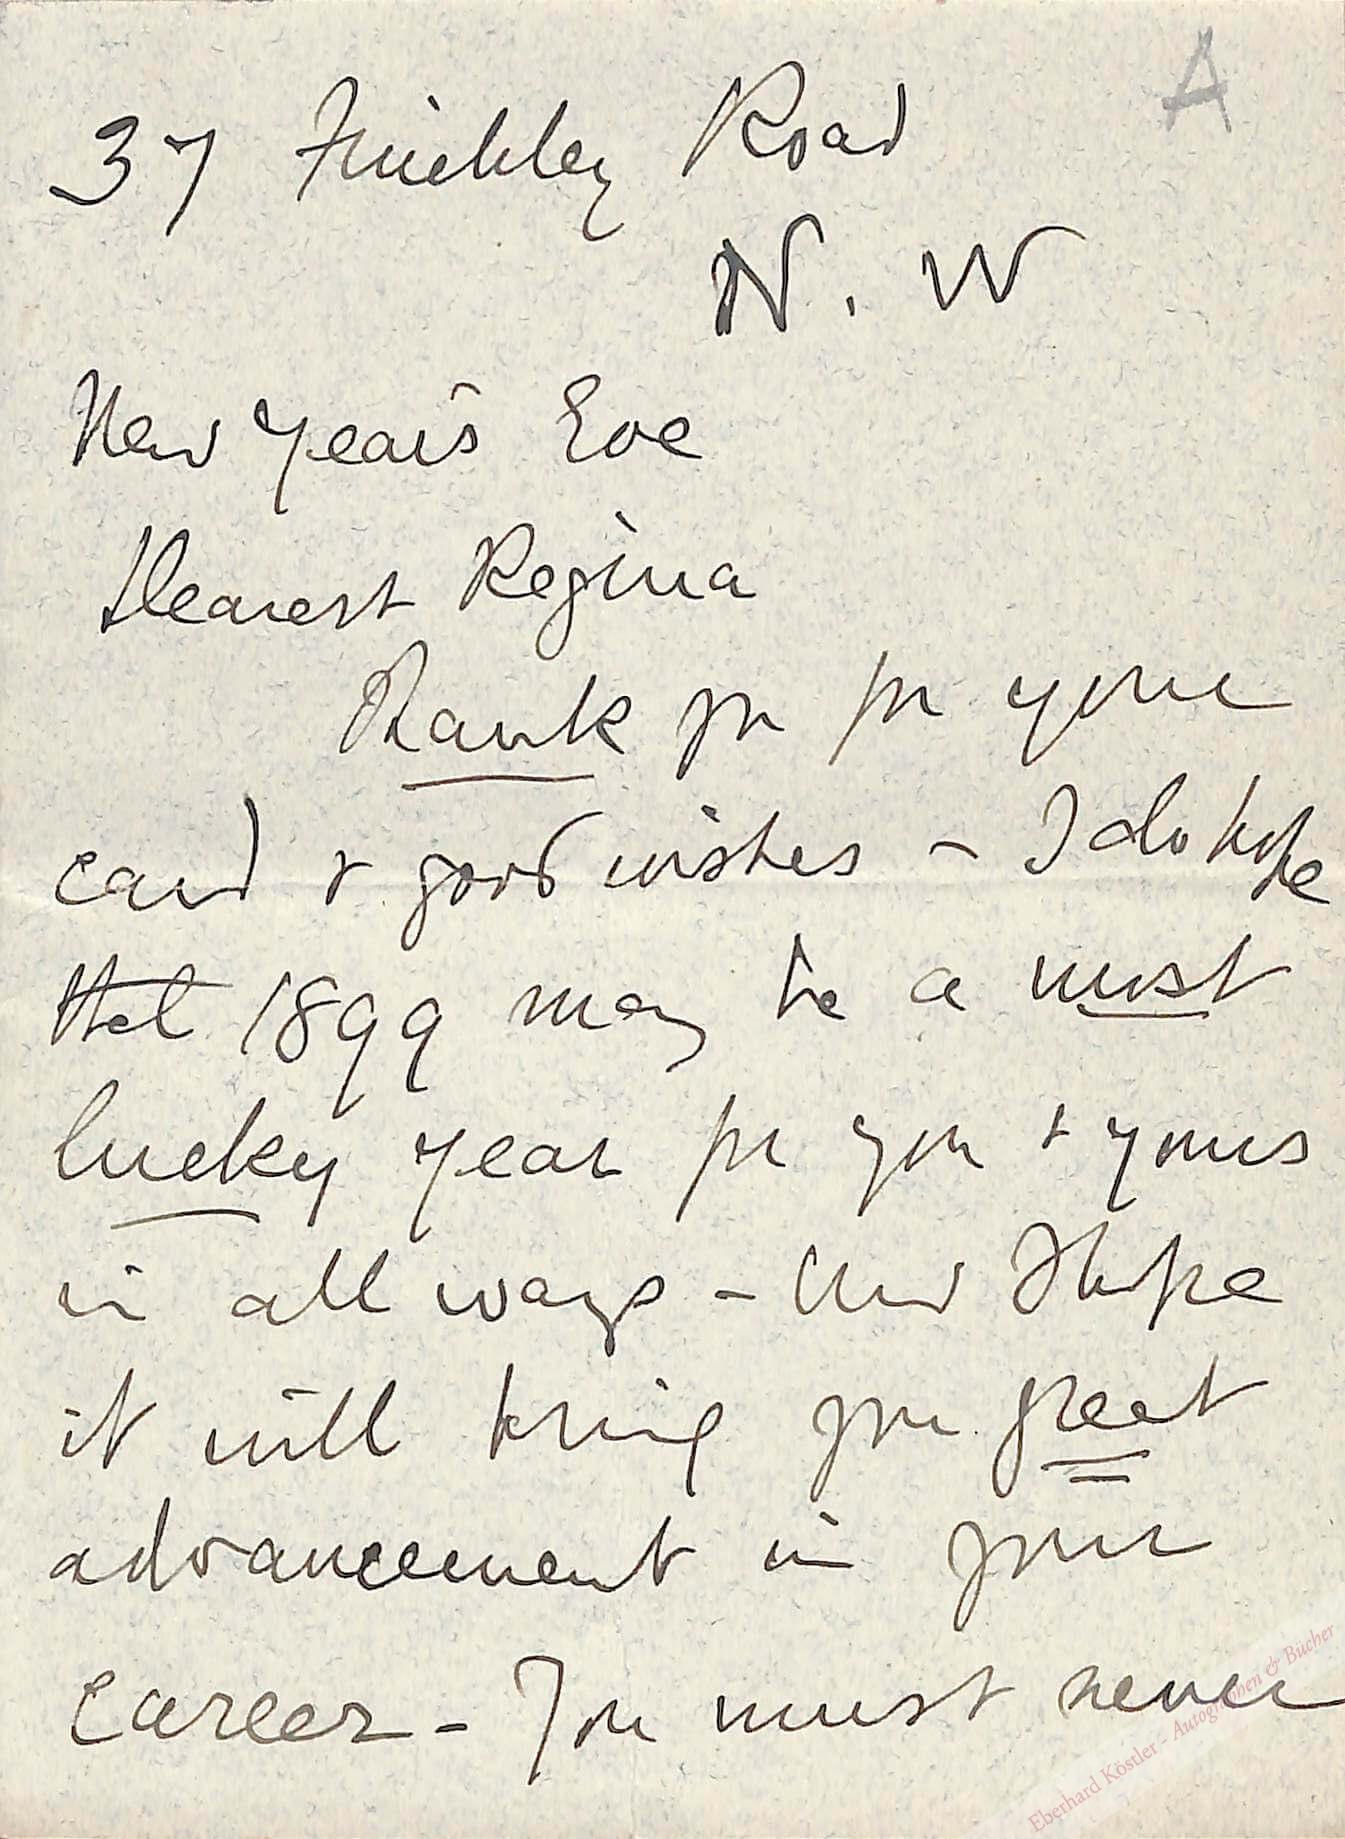 A
37 Finchley Road
N. W
New Year's Eve
Dearest Regina
Thank you for your
card & good wishes - I do hope
that 1899 may be a most
lucky year for you & yours
in all ways - And I hope
it will bring you great
advancement in your
career - You must never
Eberhard Köstler - Autographen & Bücher